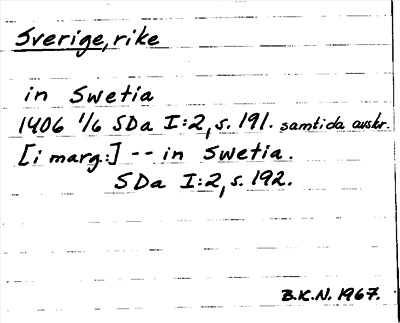 Sverige, rike
in Swetia
1406 1/6 SDa I:2, s. 191. samtida avskr.
[i marg:] -- in Swetia.
SDa I:2, s. 192.
B.K.N. 1967.